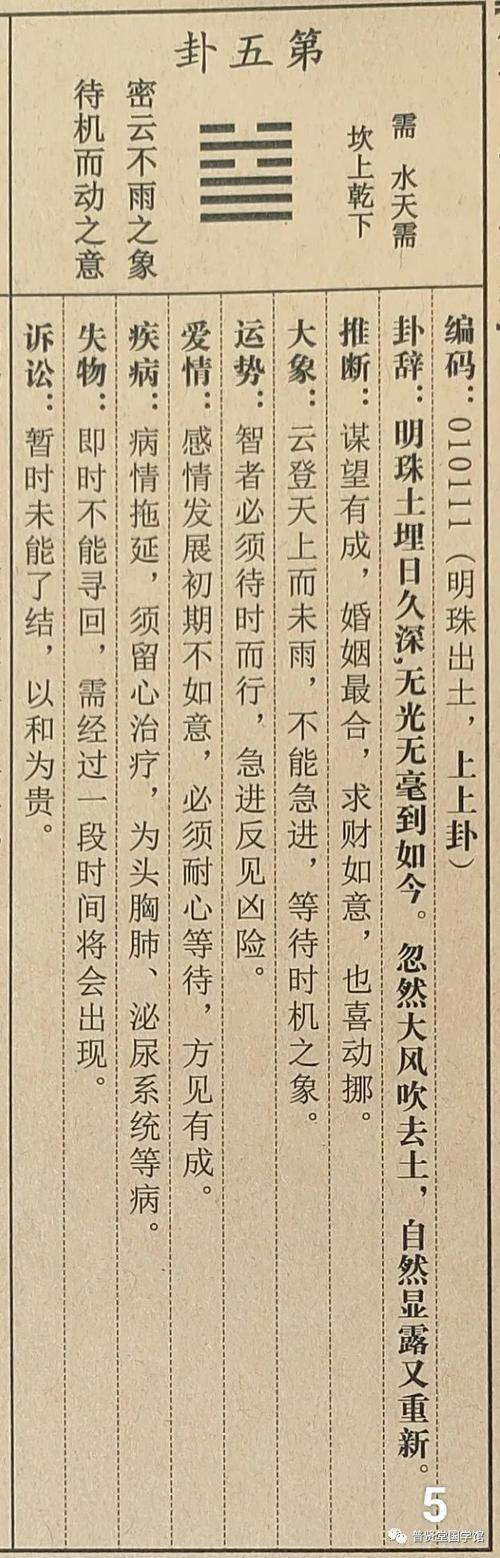 第五卦
需 水天需
坎上乾下
密云不雨之象
待机而动之意
编码：010111（明珠出土，上上卦）
卦辞：明珠土埋日久深,无光无毫到如今。忽然大风吹去土，自然显露又重新。
推断：谋望有成，婚姻最合，求财如意，也喜动挪。
大象：云登天上而未雨，不能急进，等待时机之象。
运势：智者必须待时而行，急进反见凶险。
爱情：感情发展初期不如意，必须耐心等待，方见有成。
疾病：病情拖延，须留心治疗，为头胸肺、泌尿系统等病。
失物：即时不能寻回，需经过一段时间将会出现。
诉讼：暂时未能了结，以和为贵。
5
普贤堂国学馆